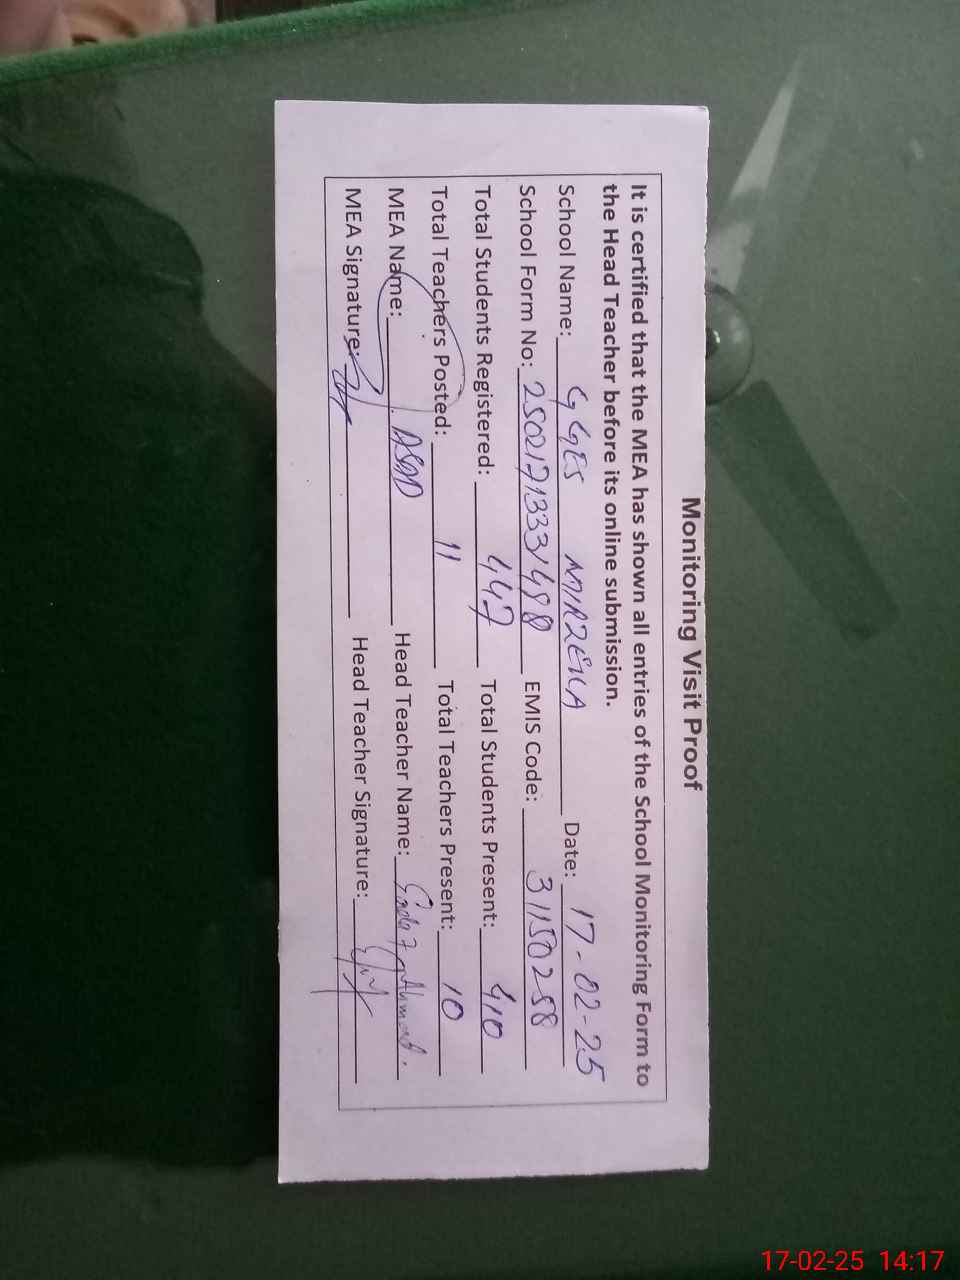 Monitoring Visit Proof
It is certified that the MEA has shown all entries of the School Monitoring Form to
the Head Teacher before its online submission.
School Name: GGES Date: 17-02-25
School Form No: EMIS Code: 31150288
Total Students Registered: 447 Total Students Present: 410
Total Teachers Posted: 11 Total Teachers Present: 10
MEA Name: ASAD Head Teacher Name: Ahmad.
MEA Signature: Head Teacher Signature:
17-02-25 14:17